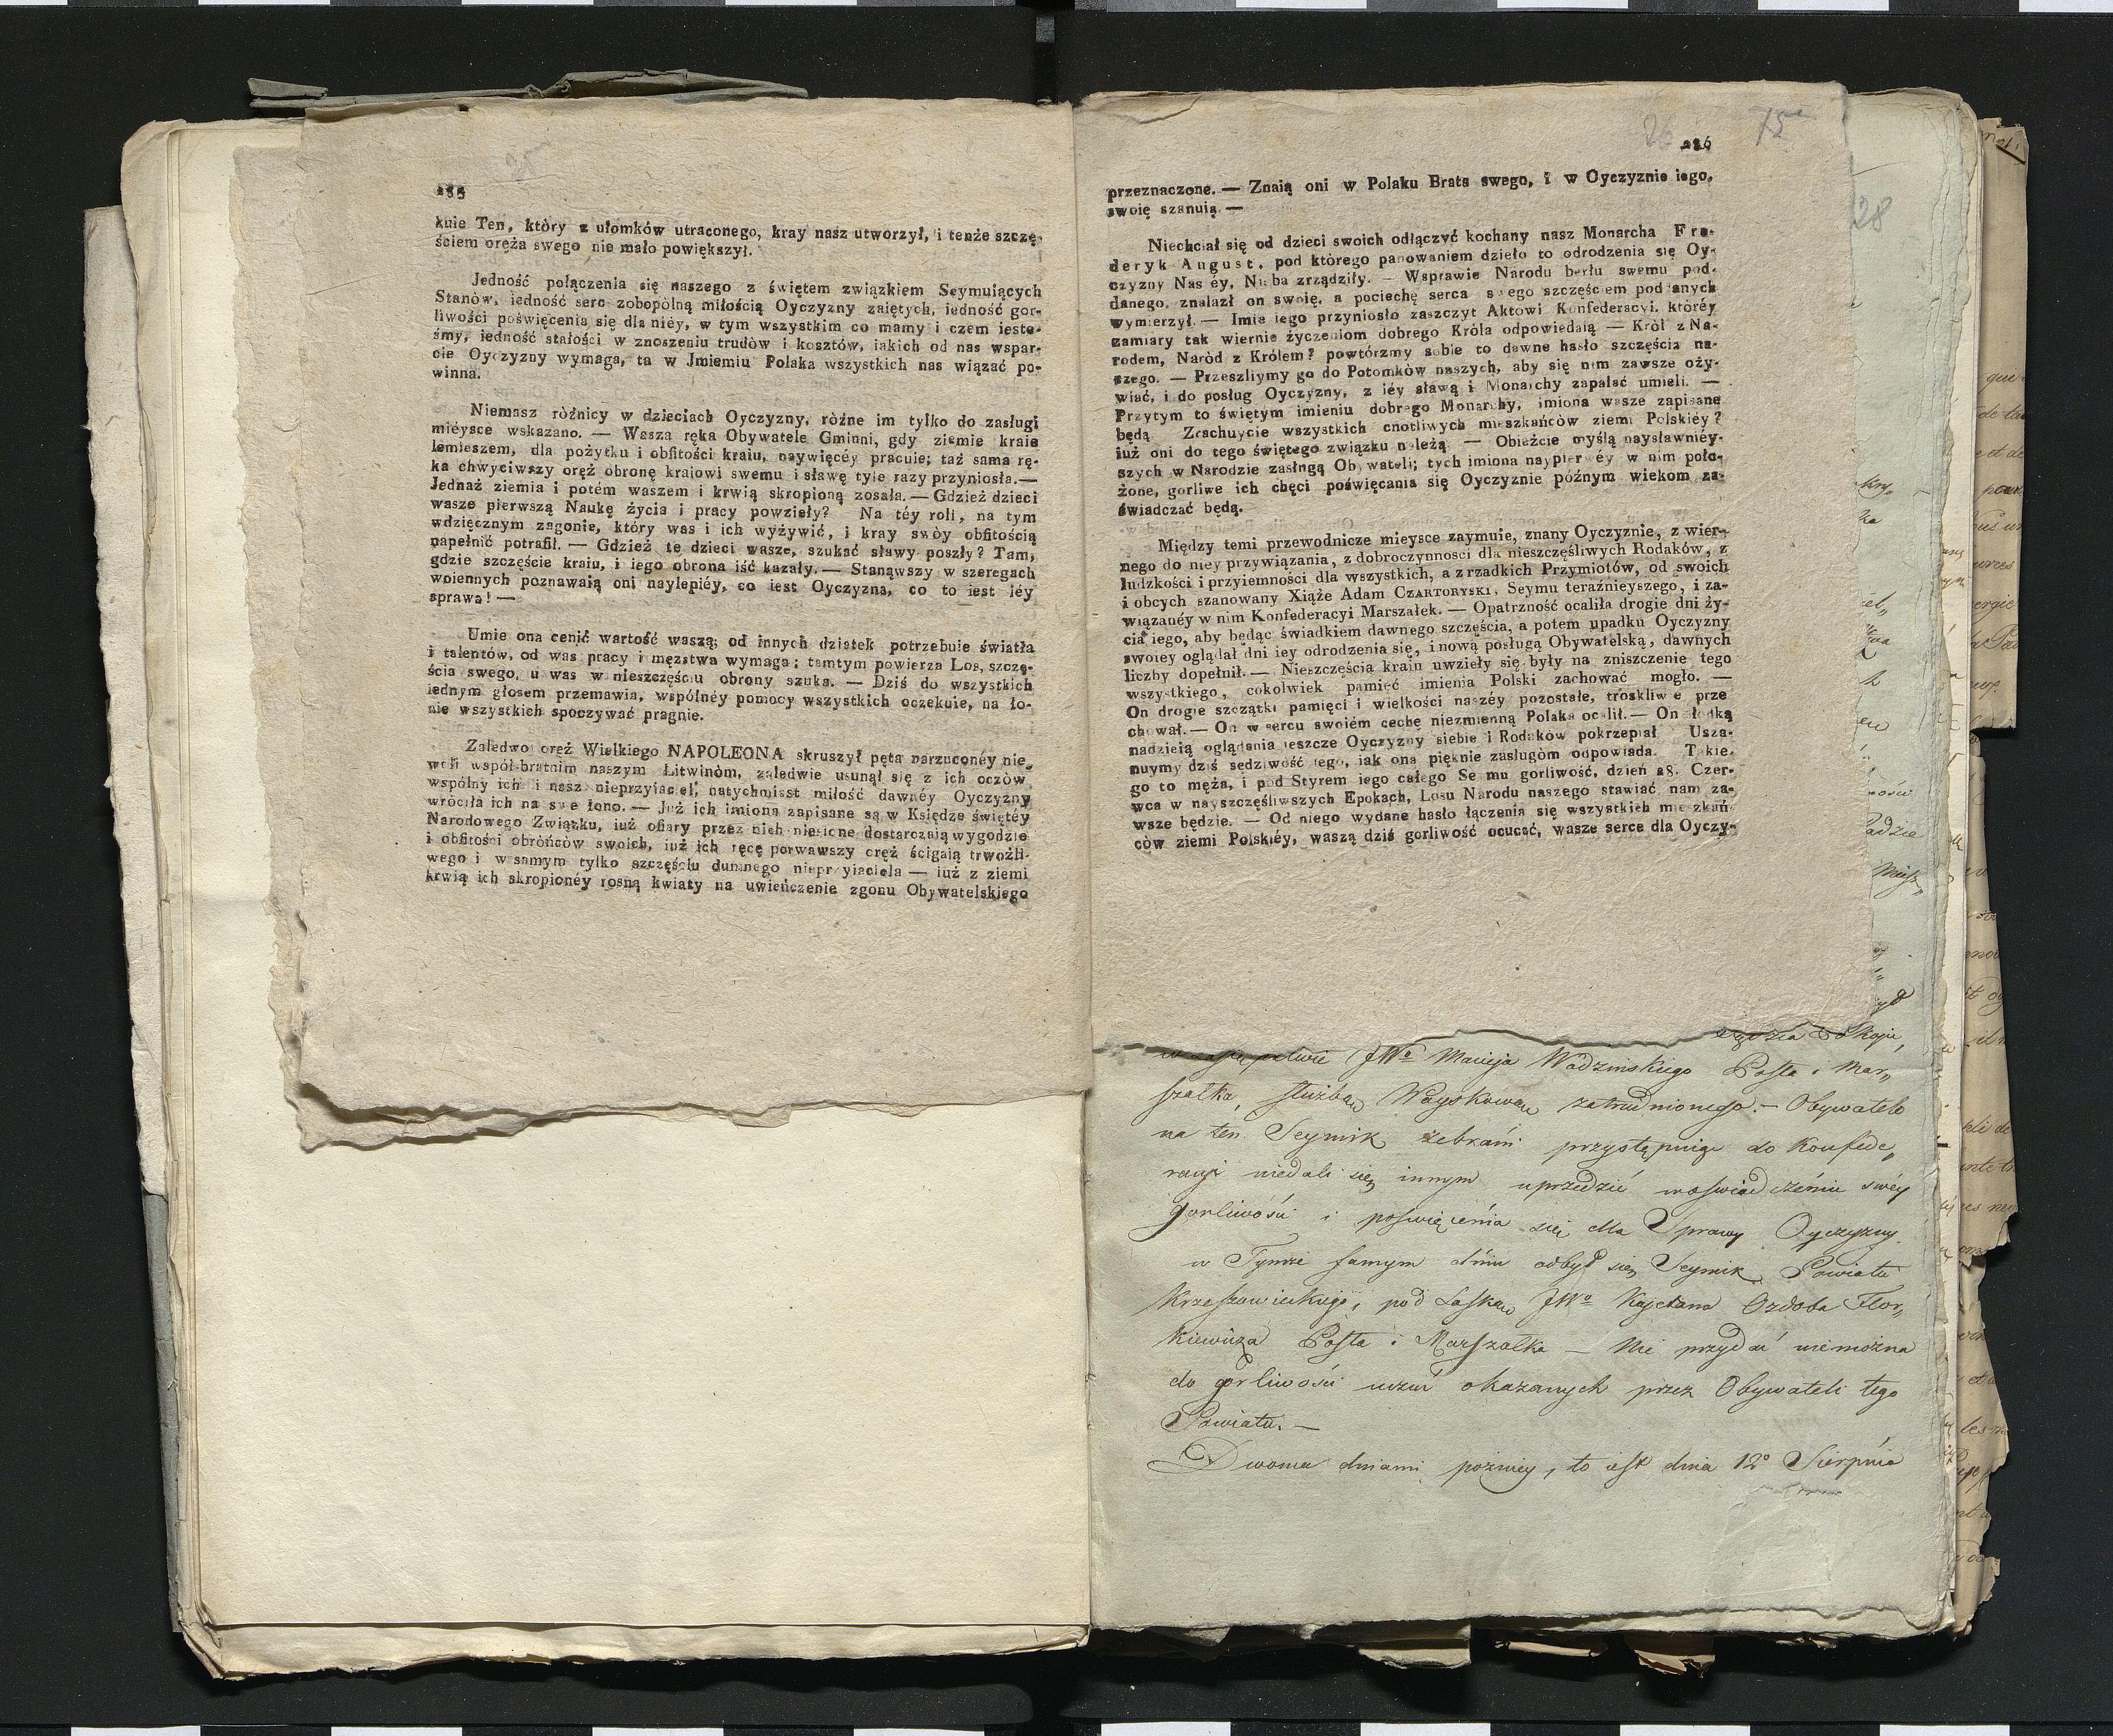 25
285
kuie Ten, który z ułomków utraconego, kray nasz utworzył, i tenże szczę-
ściem oręża swego nie mało powiększył.
Jedność połączenia się naszego z świętem związkiem Seymuiących
Stanów, iedność serc zobopólną miłością Oyczyzny zaiętych, iedność gor-
liwości poświęcenia się dla niéy, w tym wszystkim co mamy i czem ieste-
śmy, iedność stałości w znoszeniu trudów i kosztów, iakich od nas wspar-
cie Oyczyzny wymaga, ta w Jmieniu Polaka wszystkich nas wiązać po-
winna.
Niemasz różnicy w dzieciach Oyczyzny, różne im tylko do zasługi
miéysce wskazano. — Wasza ręka Obywatele Gminni, gdy ziemie kraie
lemieszem, dla pożytku i obfitości kraiu, naywięcéy pracuie; taż sama rę-
ka chwyciwszy oręż obronę kraiowi swemu i sławę tyle razy przyniosła.—
Jednaż ziemia i potém waszem i krwią skropioną zosała. — Gdzież dzieci
wasze pierwszą Naukę życia i pracy powzieły? Na téy roli, na tym
wdzięcznym zagonie, który was i ich wyżywić, i kray swòy obfitością
napełnić potrafił. — Gdzież te dzieci wasze, szukać sławy poszły? Tam,
gdzie szczęście kraiu, i iego obrona iść kazały. — Stanąwszy w szeregach
woiennych poznawaią oni naylepiéy, co iest Oyczyzna, co to iest iéy
sprawa! —
Umie ona cenić wartość waszą; od innych dziatek potrzebuie światła
i talentów, od was pracy i męzstwa wymaga; tamtym powierza Los, szczę-
ścia swego, u was w nieszczęściu obrony szuka. — Dziś do wszystkich
iednym głosem przemawia, wspólnéy pomocy wszystkich oczekuie, na ło-
nie wszystkich spoczywać pragnie.
Zaledwo oręż Wielkiego NAPOLEONA skruszył pęta narzuconéy nie-
woli współ-bratnim naszym Litwinóm, zaledwie usunął się z ich oczów
wspólny ich i nasz nieprzyiaciel, natychmiast miłość dawnéy Oyczyzny
wróciła ich na swe łono. — Już ich imiona zapisane są w Księdze świętéy
Narodowego Związku, iuż ofiary przez nich niesione dostarczaią wygodzie
i obfitości obróńców swoich, iuż ich ręce porwawszy oręż ścigaią trwożli-
wego i w samym tylko szczęściu dumnego nieprzyiaciela — iuż z ziemi
krwią ich skropionéy rosną kwiaty na uwieńczenie zgonu Obywatelskiego
26 75
286
przeznaczone. — Znaią oni w Polaku Brata swego, i w Oyczyznie iego,
swoię szanuią —
28
Niechciał się od dzieci swoich odłączyć kochany nasz Monarcha Fre-
deryk August, pod którego panowaniem dzieło to odrodzenia się Oy-
czyzny Naszéy, Nieba zrządziły. — Wsprawie Narodu berłu swemu pod-
danego, znalazł on swoię, a pociechę serca swego szczęściem poddanych
wymierzył. — Imie iego przyniosło zaszczyt Aktowi Konfederacyi, któréy
zamiary tak wiernie życzeniom dobrego Króla odpowiedaią — Król z Na-
rodem, Naród z Królem? powtórzmy sobie to dawne hasło szczęścia na-
szego. — Przeszliymy go do Potomków naszych, aby się nim zawsze oży-
wiać, i do posług Oyczyzny, z iéy sławą i Monarchy zapalać umieli. —
Przytym to świętym imieniu dobrego Monarchy, imiona wasze zapisane
będą Zrachuycie wszystkich cnotliwych mieszkańców ziemi Polskiéy?
iuż oni do tego świętego związku należą — Obieżcie myślą naysławniéy-
szych w Narodzie zasługą Obywateli; tych imiona naypierwéy w nim poło-
żone, gorliwe ich chęci poświęcania się Oyczyznie późnym wiekom za-
świadczać będą.
Między temi przewodnicze mieysce zaymuie, znany Oyczyznie, z wier-
nego do niey przywiązania, z dobroczynności dla nieszczęśliwych Rodaków, z
ludzkości i przyiemności dla wszystkich, a z rzadkich Przymiotów, od swoich
i obcych szanowany Xiąże Adam CZARTORYSKI, Seymu teraźnieyszego, i za-
wiązanéy w nim Konfederacyi Marszałek. — Opatrzność ocaliła drogie dni ży-
cia iego, aby będąc świadkiem dawnego szczęścia, a potem upadku Oyczyzny
swoiey oglądał dni iey odrodzenia się, i nową posługą Obywatelską, dawnych
liczby dopełnił. — Nieszczęścia kraiu uwzieły się były na zniszczenie tego
wszystkiego, cokolwiek pamięć imienia Polski zachować mogło. —
On drogie szczątki pamięci i wielkości naszéy pozostałe, troskliwie prze
chował. — On w sercu swoiém cechę niezmienną Polaka ocalił. — On słodką
nadzieią oglądania ieszcze Oyczyzny siebie i Rodaków pokrzepiał Usza-
nuymy dziś sędziwość iego, iak ona pięknie zasługòm odpowiada. Takie-
go to męża, i pod Styrem iego całego Seymu gorliwość, dzień 28. Czer-
wca w nayszczęśliwszych Epokach, Losu Narodu naszego stawiać nam za-
wsze będzie. — Od niego wydane hasło łączenia się wszystkich mieszkań
ców ziemi Polskiéy, waszą dziś gorliwość ocucać, wasze serce dla Oyczy-
Pokoju,
JWo Macieja Wodzinskiego Posła i Mar„
szałka, służbą Woyskową zatrudnionego. — Obywatele
na ten Seymik zebrani przystępuiąc do Konfede„
racyi niedali się innym uprzedzić w oświadczeniu swéy
gorliwości i poświęcenia się dla Sprawy Oyczyzny.
w Tymże samym dniu odbył się Seymik Powiatu
Krzeszowickiego, pod Laską JWo Kajetana Ozdoba Flor„
kiewicza Posła i Marszałka — Nic przydać niemożna
do gorliwości uczuć okazanych przez Obywateli tego
Powiatu. —
Dwoma dniami poźniey, to iest dnia 12o Sierpnia